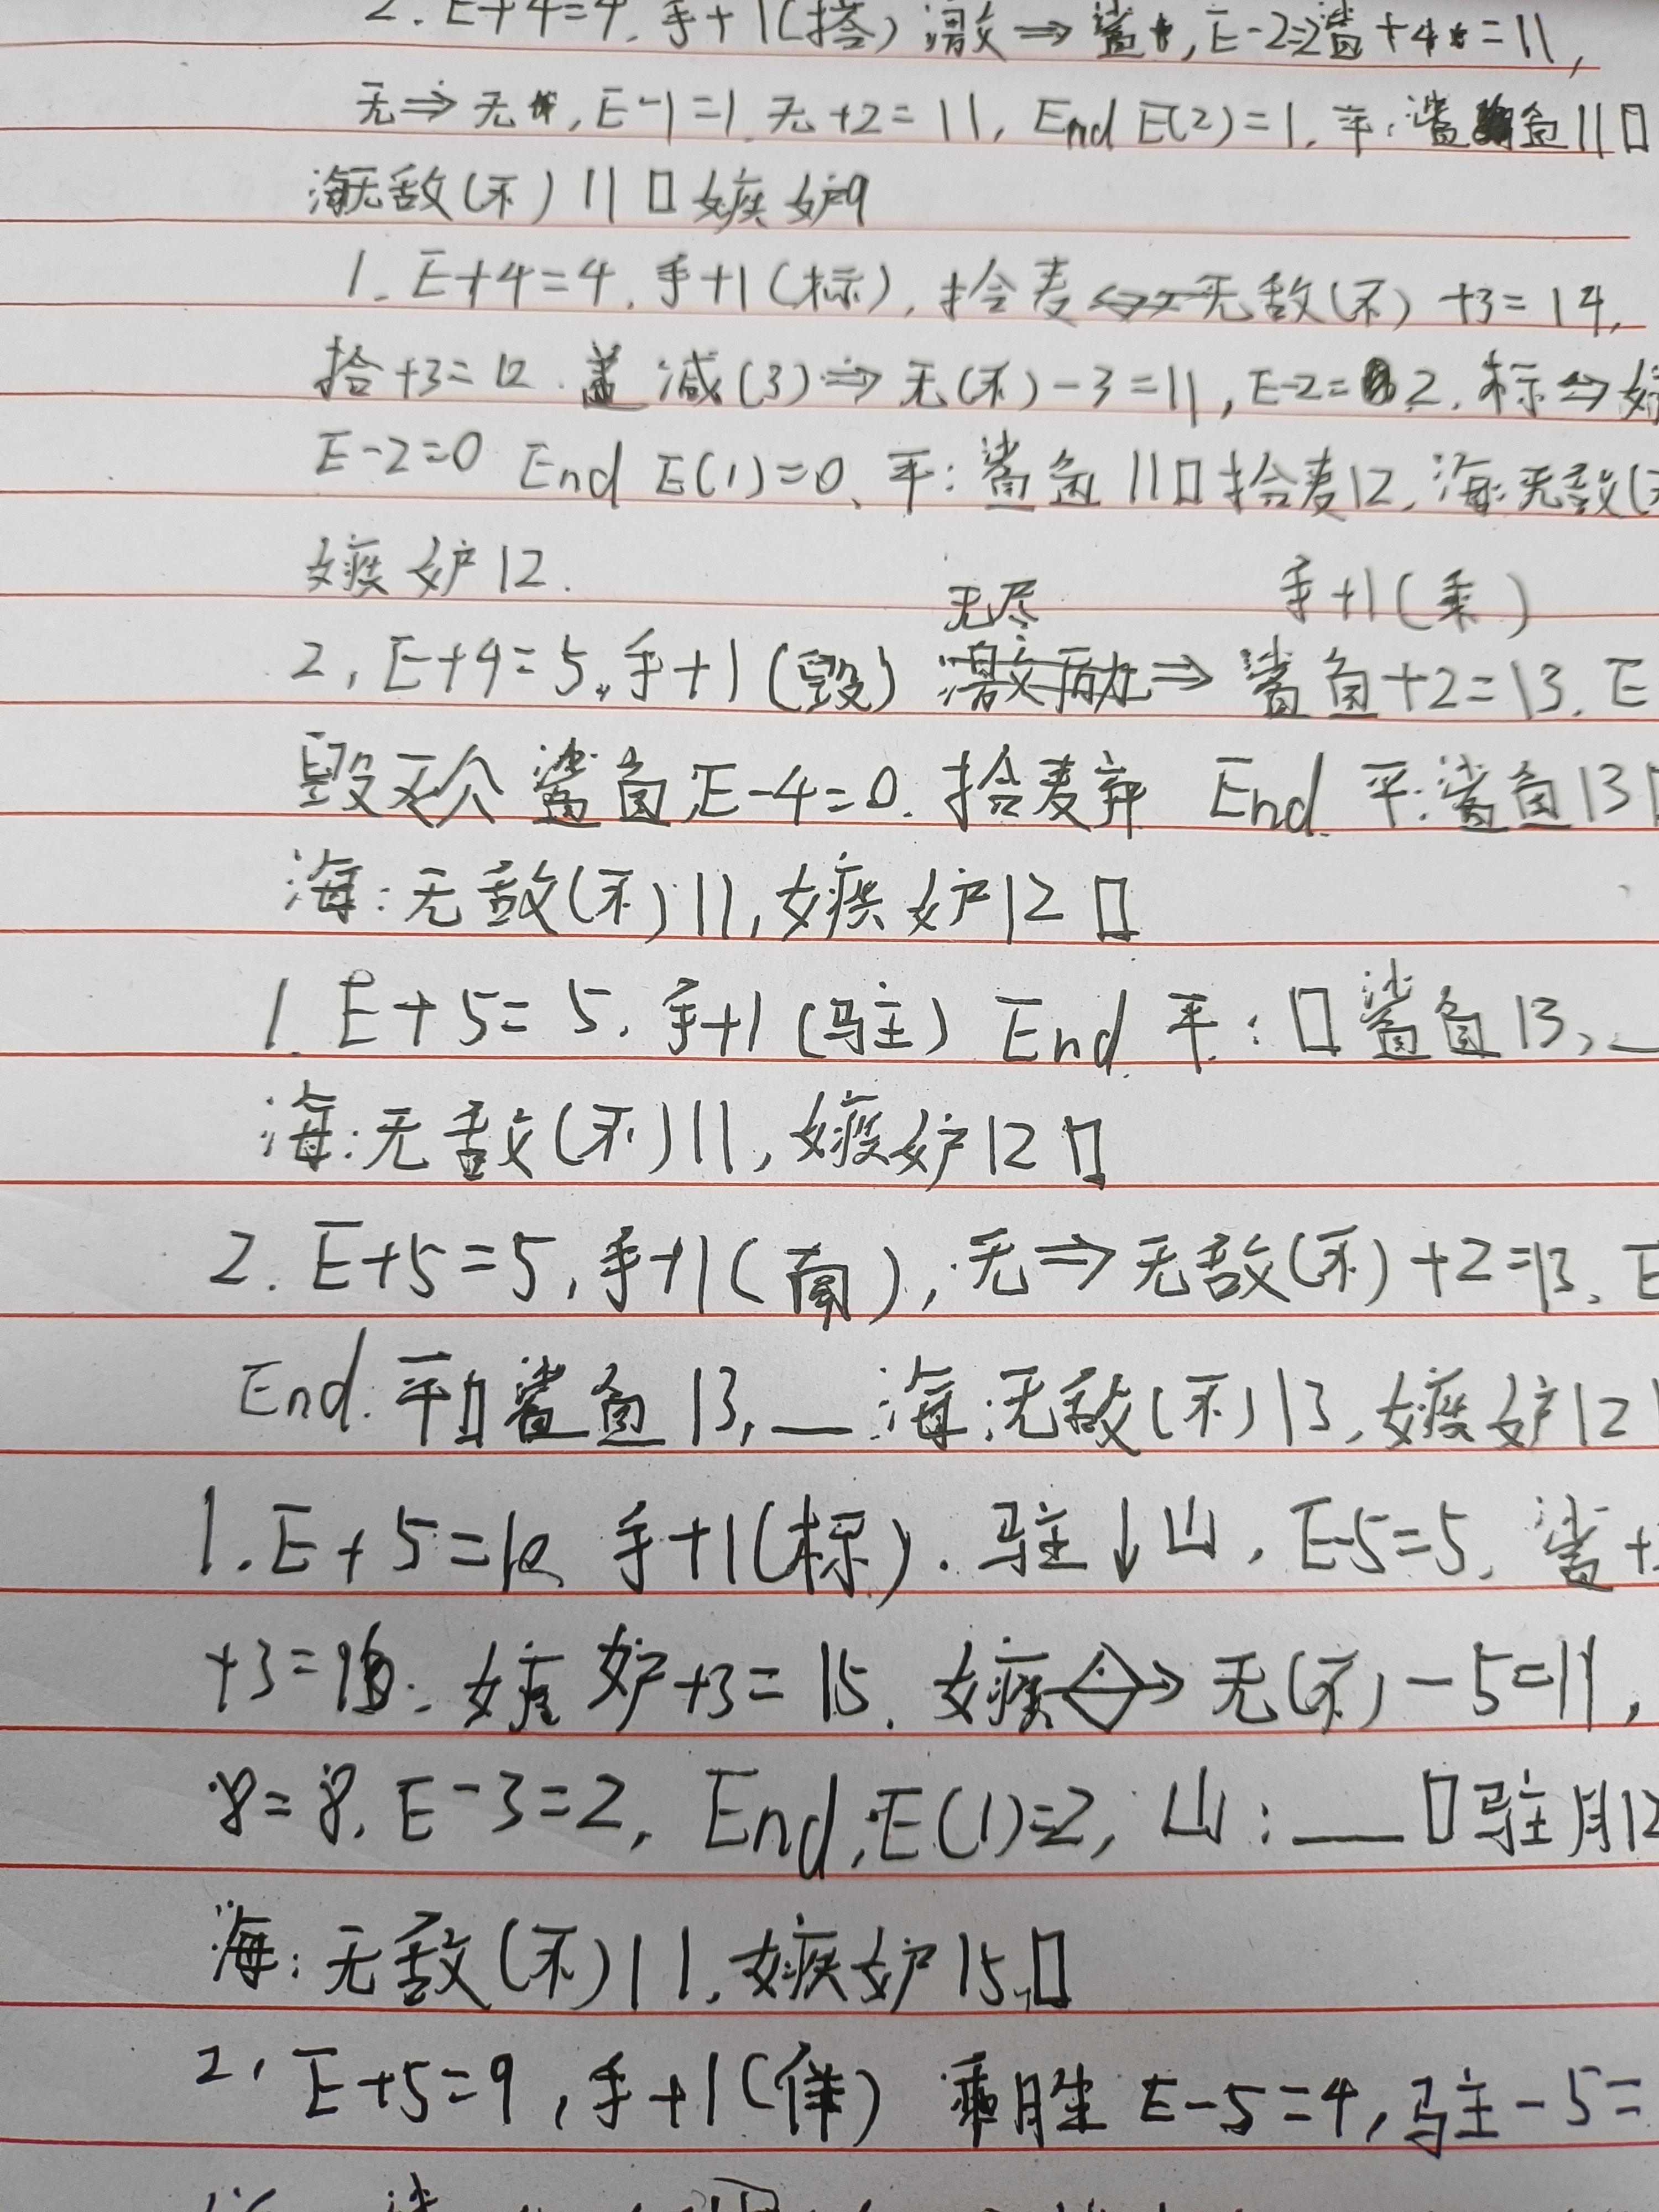 2. E+4=4. 手+1(搭) 激⇒鲨, E-2=2 鲨+4=11,
无⇒无, E-1=1. 无+2=11, End E(2)=1. 平:鲨鱼11□
海无敌(不)11□嫉妒9
1. E+4=4. 手+1(标), 拾麦⇔无敌(不)+3=14,
拾+3=12. 减(3)⇒无(不)-3=11, E-2=2. 标⇒嫉
E-2=0 End E(1)=0. 平:鲨鱼11□拾麦12, 海:无敌(不
嫉妒12.
无尽 手+1(乘)
2, E+4=5. 手+1(毁) 激励⇒鲨鱼+2=13. E
毁灭 鲨鱼 E-4=0. 拾麦弃 End. 平:鲨鱼13□
海:无敌(不)11, 嫉妒12□
1. E+5=5. 手+1(驻) End. 平:□鲨鱼13, _
海:无敌(不)11, 嫉妒12□
2. E+5=5, 手+1(), 无⇒无敌(不)+2=13. E
End. 平□鲨鱼13, __ 海:无敌(不)13, 嫉妒12
1. E+5=10 手+1(). 驻↓山, E-5=5. 鲨+
+3=16. 嫉妒+3=15. 嫉→无(不)-5=11,
8=8. E-3=2, End, E(1)=2, 山: __□驻月12
海:无敌(不)11. 嫉妒15,□
2, E+5=9, 手+1(佯) 乘胜 E-5=4, 驻-5=